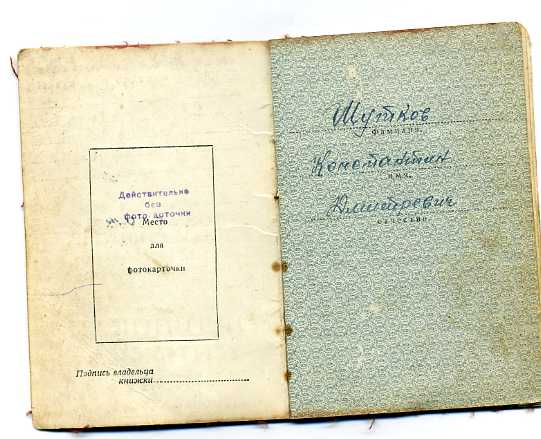 Действительно
без
фотокарточки
Место
для
фотокарточки
Подпись владельца
книжки
Шутков
фамилия
Константин
имя
Дмитриевич
отчество